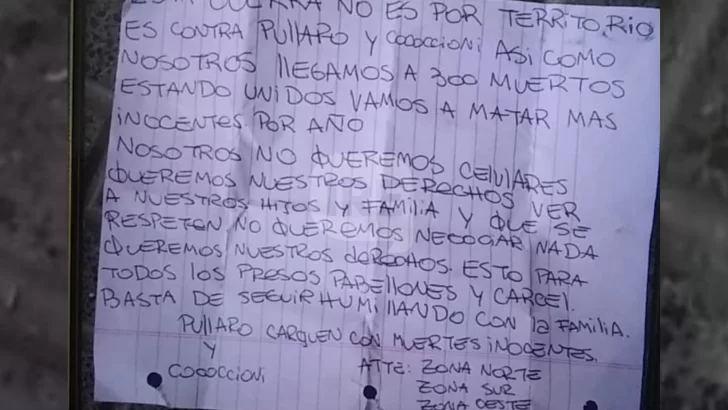 NO ES POR TERRITORIO
ES CONTRA PULLARO Y COCOCCIONI ASI COMO
NOSOTROS LLEGAMOS A 300 MUERTOS
ESTANDO UNIDOS VAMOS A MATAR MAS
INOCENTES POR AÑO
NOSOTROS NO QUEREMOS CELULARES
QUEREMOS NUESTROS DERECHOS VER
A NUESTROS HIJOS Y FAMILIA Y QUE SE
RESPETEN NO QUEREMOS NEGOCIAR NADA
QUEREMOS NUESTROS DERECHOS. ESTO PARA
TODOS LOS PRESOS PABELLONES Y CARCEL.
BASTA DE SEGUIR HUMILLANDO CON LA FAMILIA.
PULLARO CARGUEN CON MUERTES INOCENTES.
Y
COCOCCIONI
ATTE: ZONA NORTE
ZONA SUR
ZONA OESTE